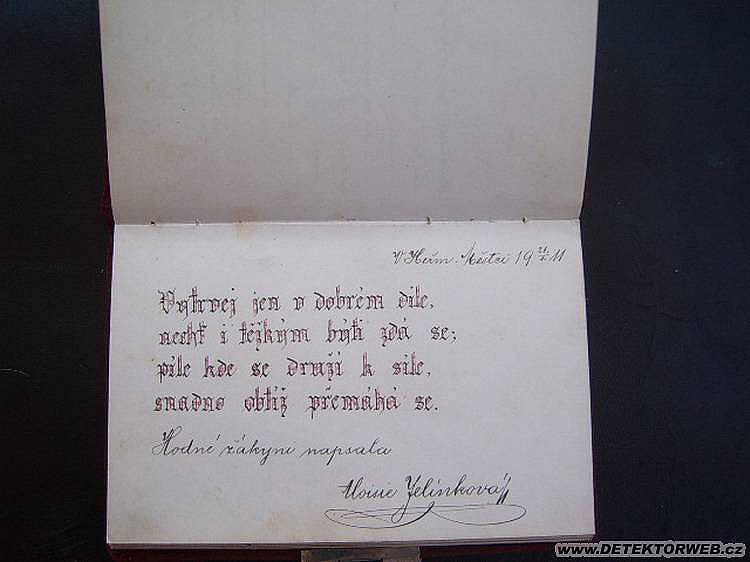 V Heřm. Městci 19 21./X. 11
Vytrvej jen v dobrém díle,
nechť i těžkým býti zdá se;
píle kde se druží k síle,
snadno obtíž přemáhá se.
Hodné žákyni napsala
Aloisie Jelínková
www.DETEKTORWEB.cz